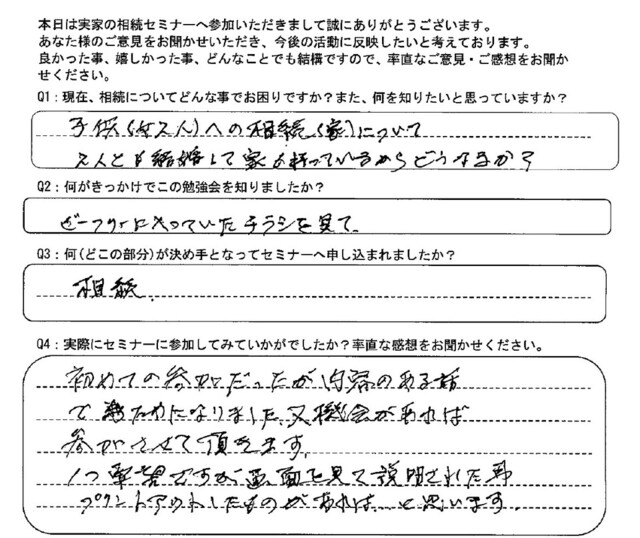 本日は実家の相続セミナーへ参加いただきまして誠にありがとうございます。
あなた様のご意見をお聞かせいただき、今後の活動に反映したいと考えております。
良かった事、嬉しかった事、どんなことでも結構ですので、率直なご意見・ご感想をお聞か
せください。
Q1：現在、相続についてどんな事でお困りですか？また、何を知りたいと思っていますか？
子供(女2人)への相続(家)について
2人とも結婚して家も持っているからどうなるか？
Q2：何がきっかけでこの勉強会を知りましたか？
ビーフリーに入っていたチラシを見て、
Q3：何(どこの部分)が決め手となってセミナーへ申し込まれましたか？
相続、
Q4：実際にセミナーに参加してみていかがでしたか？率直な感想をお聞かせください。
初めての参加だったが内容のある話
で ためになりました、又機会があれば
参加させて頂きます。
1つ要望ですが画面を見て説明された事
プリントアウトしたものがあれば、と思います。